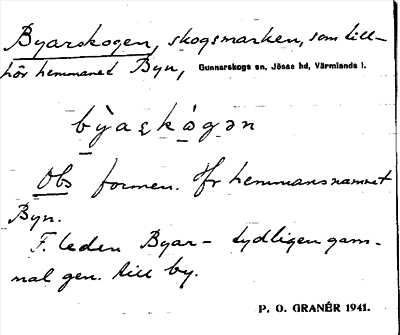 Byarskogen, skogsmarken, som till-
hör hemmanet Byn, Gunnarskogs sn, Jösse hd, Värmlands l.
bỳaskògən
Obs formen. Jfr hemmansnamnet
Byn.
F. leden Byar- tydligen gam-
mal gen. till by.
P. O. GRANÉR 1941.